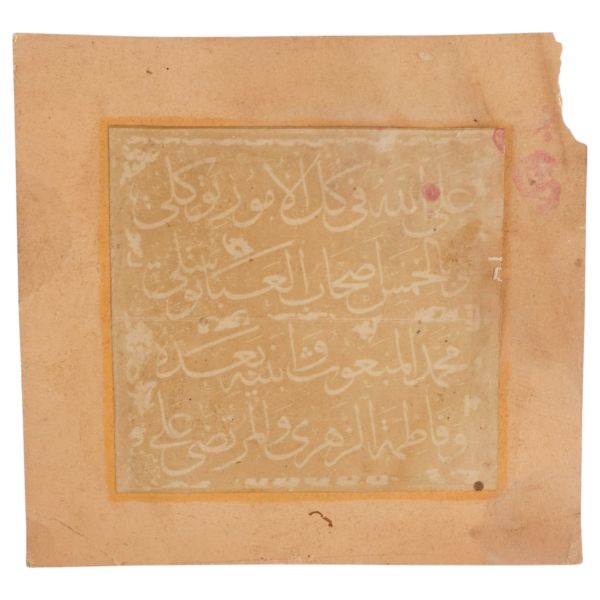 على الله في كل الامور توكلي
وبالخمس اصحاب العبا توسلي
محمد المبعوث وابنيه بعده
وفاطمة الزهرى والمرتضى علي